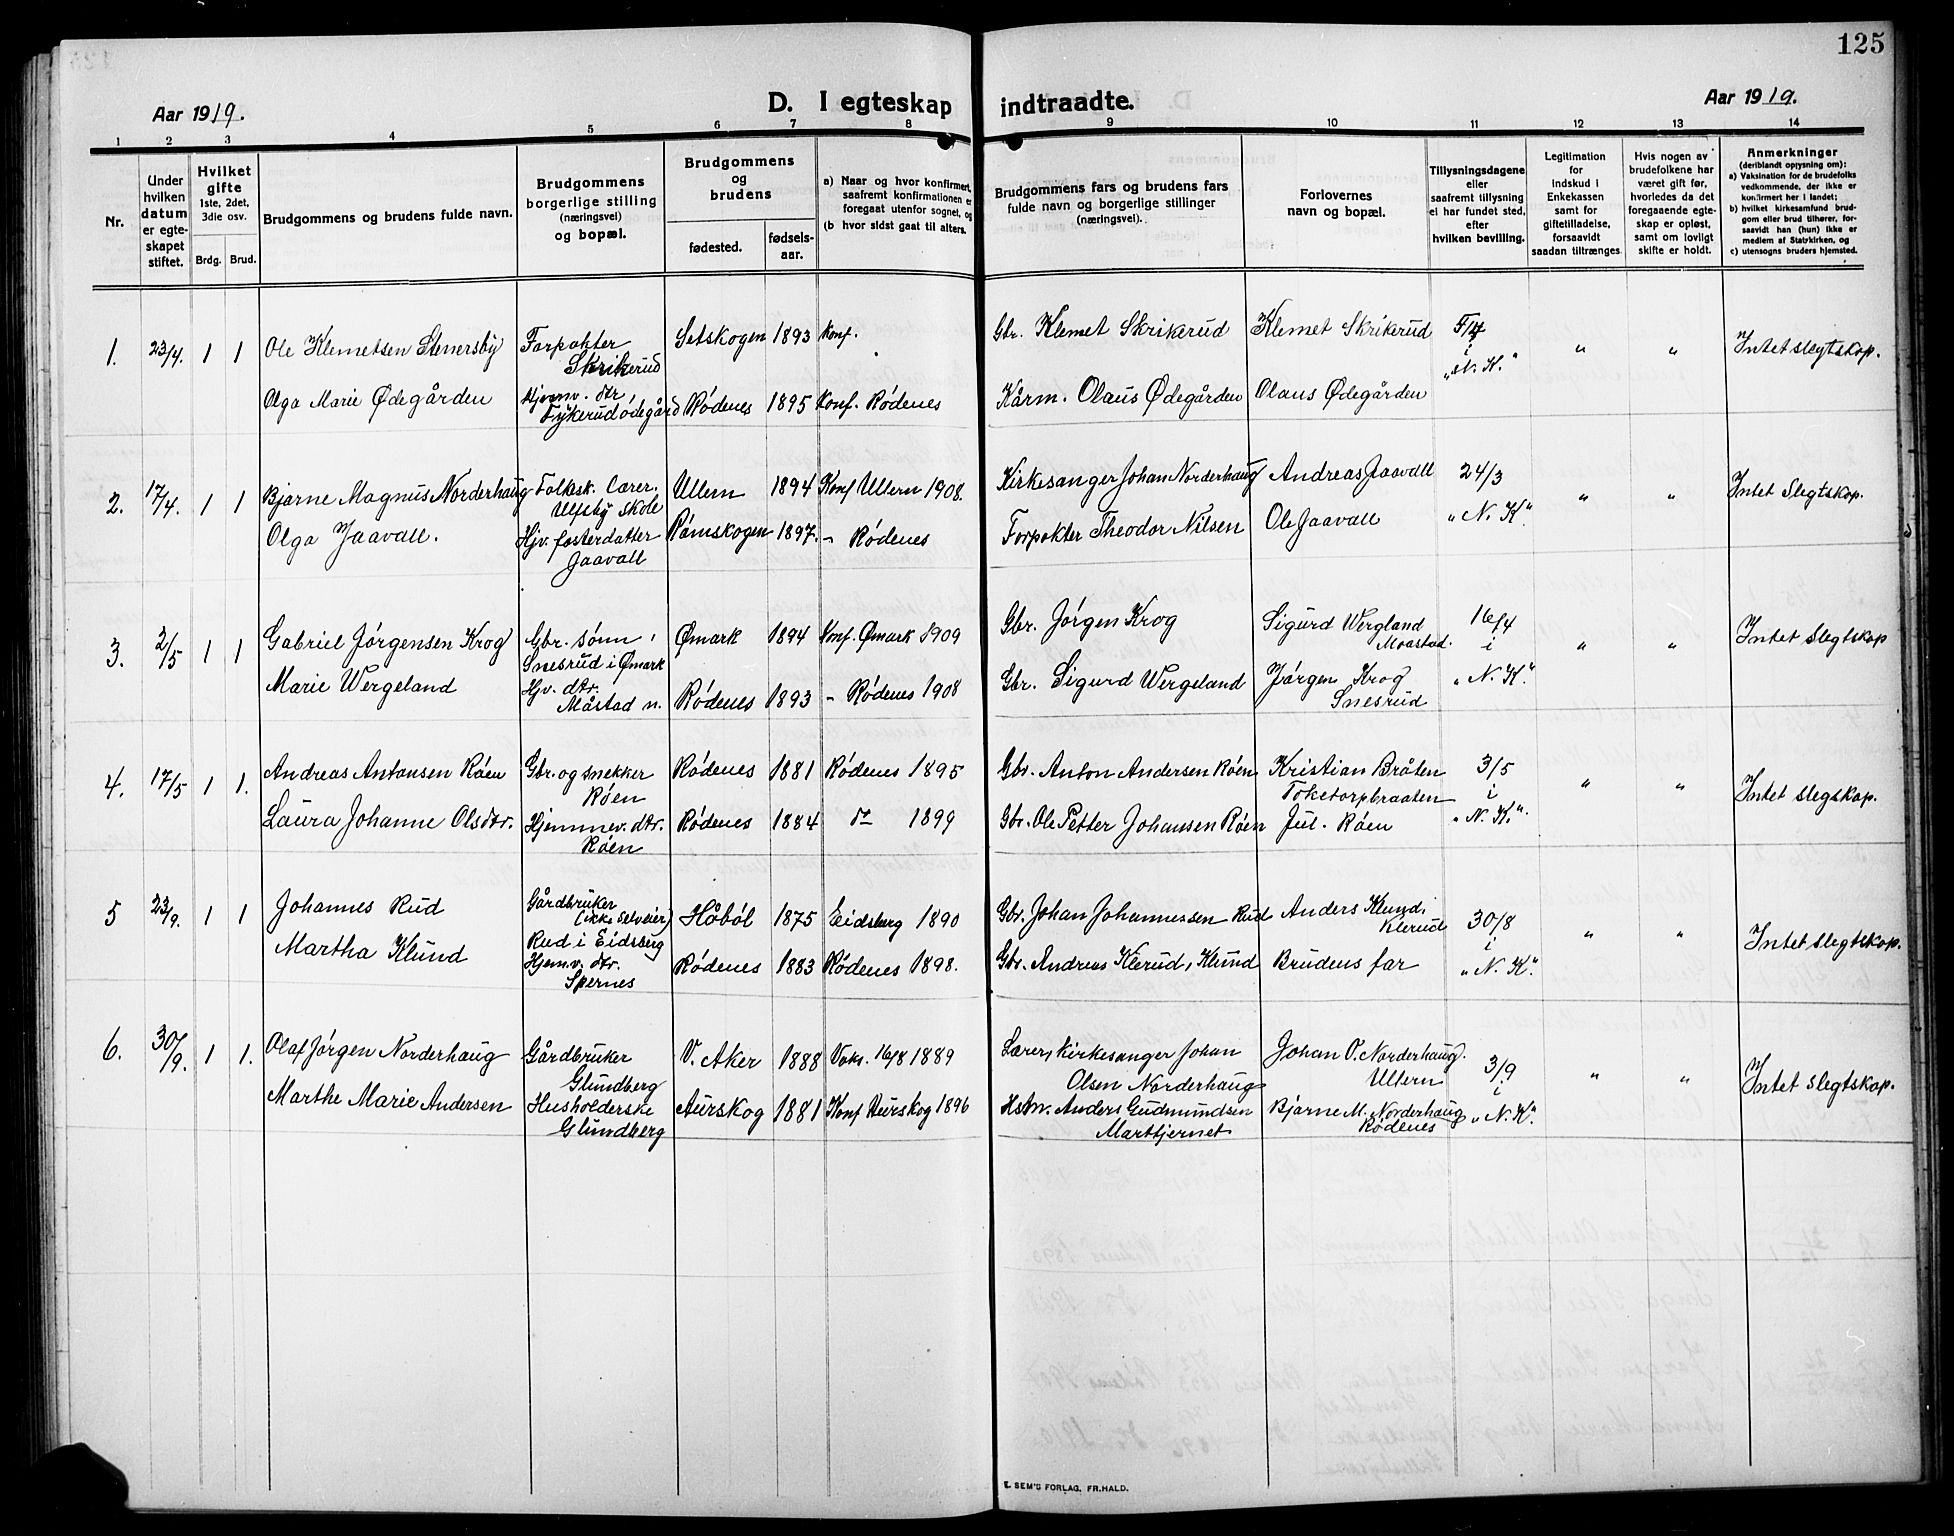 125
Aar 1919.
D. I egteskap indtraadte.
Aar 1919.
1 2 3 4 5 6 7 8 9 10 11 12 13 14
Nr.
Under hvilken datum er egteskapet stiftet.
Hvilket gifte 1ste, 2det, 3die osv.
Brdg. Brud.
Brudgommens og brudens fulde navn.
Brudgommens borgerlige stilling (næringsvei) og bopæl.
Brudgommens og brudens
fødested.
fødselsaar.
a) Naar og hvor konfirmert, saafremt konfirmationen er foregaat utenfor sognet, og
(b hvor sidst gaat til alters.
Brudgommens fars og brudens fars fulde navn og borgerlige stillinger (næringsvei).
Forlovernes navn og bopæl.
Tillysningsdagene eller saafremt tillysning ei har fundet sted, efter hvilken bevilling.
Legitimation for indskud i Enkekassen samt for giftetilladelse, forsaavidt saadan tiltrænges.
Hvis nogen av brudefolkene har været gift før, hvorledes da det foregaaende egteskap er opløst, samt om lovligt skifte er holdt.
Anmerkninger (deriblandt opysning om):
a) Vaksination for de brudefolks vedkommende, der ikke er konfirmert her i landet;
b) hvilket kirkesamfund brudgom eller brud tilhører, forsaavidt han (hun) ikke er medlem af Statskirken, og
c) utensogns bruders hjemsted.
1. 23/4. 1 1 Ole Klemetsen Stenersby Forpakter Skrikerud Setskogen 1893 Konf. Gbr. Klemet Skrikerud Klemet Skrikerud i „N. K.“ " " Intet slegtskap.
Olga Marie Ødegården Hjemv. dtr, Fykerud ødegård Rødenes 1895 Konf. Rødenes Kårm. Olaus Ødegården Olaus Ødegården
2. 17/4. 1 1 Bjarne Magnus Norderhaug Folksk. Lærer. Ulfsby skole Ullern 1894 Konf Ullern 1908. Kirkesanger Johan Norderhaug Andreas Jaavall 24/3 „N. K“. " " Intet Slegtskap.
Olga Jaavall. Hjv. fosterdatter Jaavall Rømskogen 1897. – Rødenes Forpakter Theodor Nilsen Ole Jaavall
3. 2/5 1 1 Gabriel Jørgensen Krog Gbr. sønn, Snesrud i Ømark Ømark 1894 Konf. Ømark 1909 Gbr. Jørgen Krog Sigurd Wergland Moastad. 16/4 i „N. K“. " " Intet Slegtskap
Marie Wergeland Hjv. dtr. Måstad n. Rødenes 1893 – Rødenes 1908 Gbr. Sigurd Wergeland Jørgen Krog Snesrud
4. 17/5 1 1. Andreas Antonsen Røen Gbr. og snekker Røen Rødenes 1881 Rødenes 1895 Gbr. Anton Andersen Røen Kristian Bråten Toketorpbraaten 3/5 i „N. K.“. " " Intet slegskap.
Laura Johanne Olsdtr. Hjemmev. dtr. Røen Rødenes 1884 do 1899 Gbr. Ole Petter Johansen Røen Jul. Røen
5 23/9. 1 1 Johannes Rud Gårdbruker (ikke selveier) Rud i Eidsberg Håbøl 1875 Eidsberg 1890 Gbr. Johan Johannessen Rud Anders Klund, Klerud 30/8 i „N. K“. " " Intet slegtskap.
Martha Klund Hjem.v. dtr. Spernes Rødenes 1883 Rødenes 1898. Gbr. Andreas Klerud, Klund Brudens far
6. 30/9. 1 1. Olaf Jørgen Norderhaug Gårdbruker Glundberg V. Aker 1888 Vaks. 16/8 1889 Lærer, kirkesanger Johan Olsen Norderhaug Johan O. Norderhaug. Ullern 3/9 i „N. K“. " " Intet slegtskap.
Marthe Marie Andersen Husholderske Glundberg Aurskog 1881 Konf Aurskog 1896 Hstm. Anders Gudmundsen Marttjernet Bjarne M. Norderhaug Rødenes
E. SEM'S FORLAG, FR.HALD.